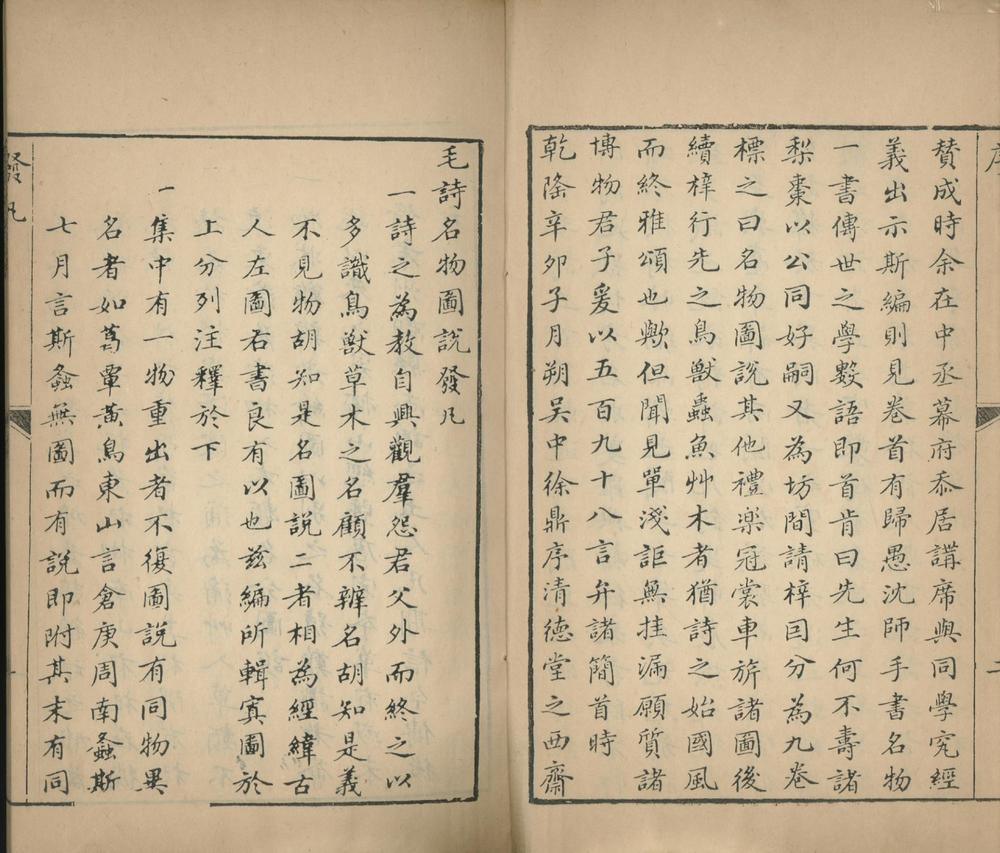 序
二
賛成時余在中丞幕府忝居講席與同學究經
義出示斯編則見卷首有歸愚沈師手書名物
一書傳世之學數語即首肯曰先生何不壽諸
梨棗以公同好嗣又為坊間請梓囙分為九卷
標之曰名物圖說其他禮樂冠裳車旂諸圖後
續梓行先之鳥獸蟲魚艸木者猶詩之始國風
而終雅頌也歟但聞見單淺詎無挂漏願質諸
博物君子爰以五百九十八言弁諸簡首時
乾隆辛卯子月朔吳中徐鼎序清德堂之西齋
毛詩名物圖說發凡
一詩之為教自興觀羣怨君父外而終之以
多識鳥獸草木之名顧不辨名胡知是義
不見物胡知是名圖說二者相為經緯古
人左圖右書良有以也茲編所輯寘圖於
上分列注釋於下
一集中有一物重出者不復圖說有同物異
名者如葛覃黃鳥東山言倉庚周南螽斯
七月言斯螽無圖而有說即附其末有同
發凡
一